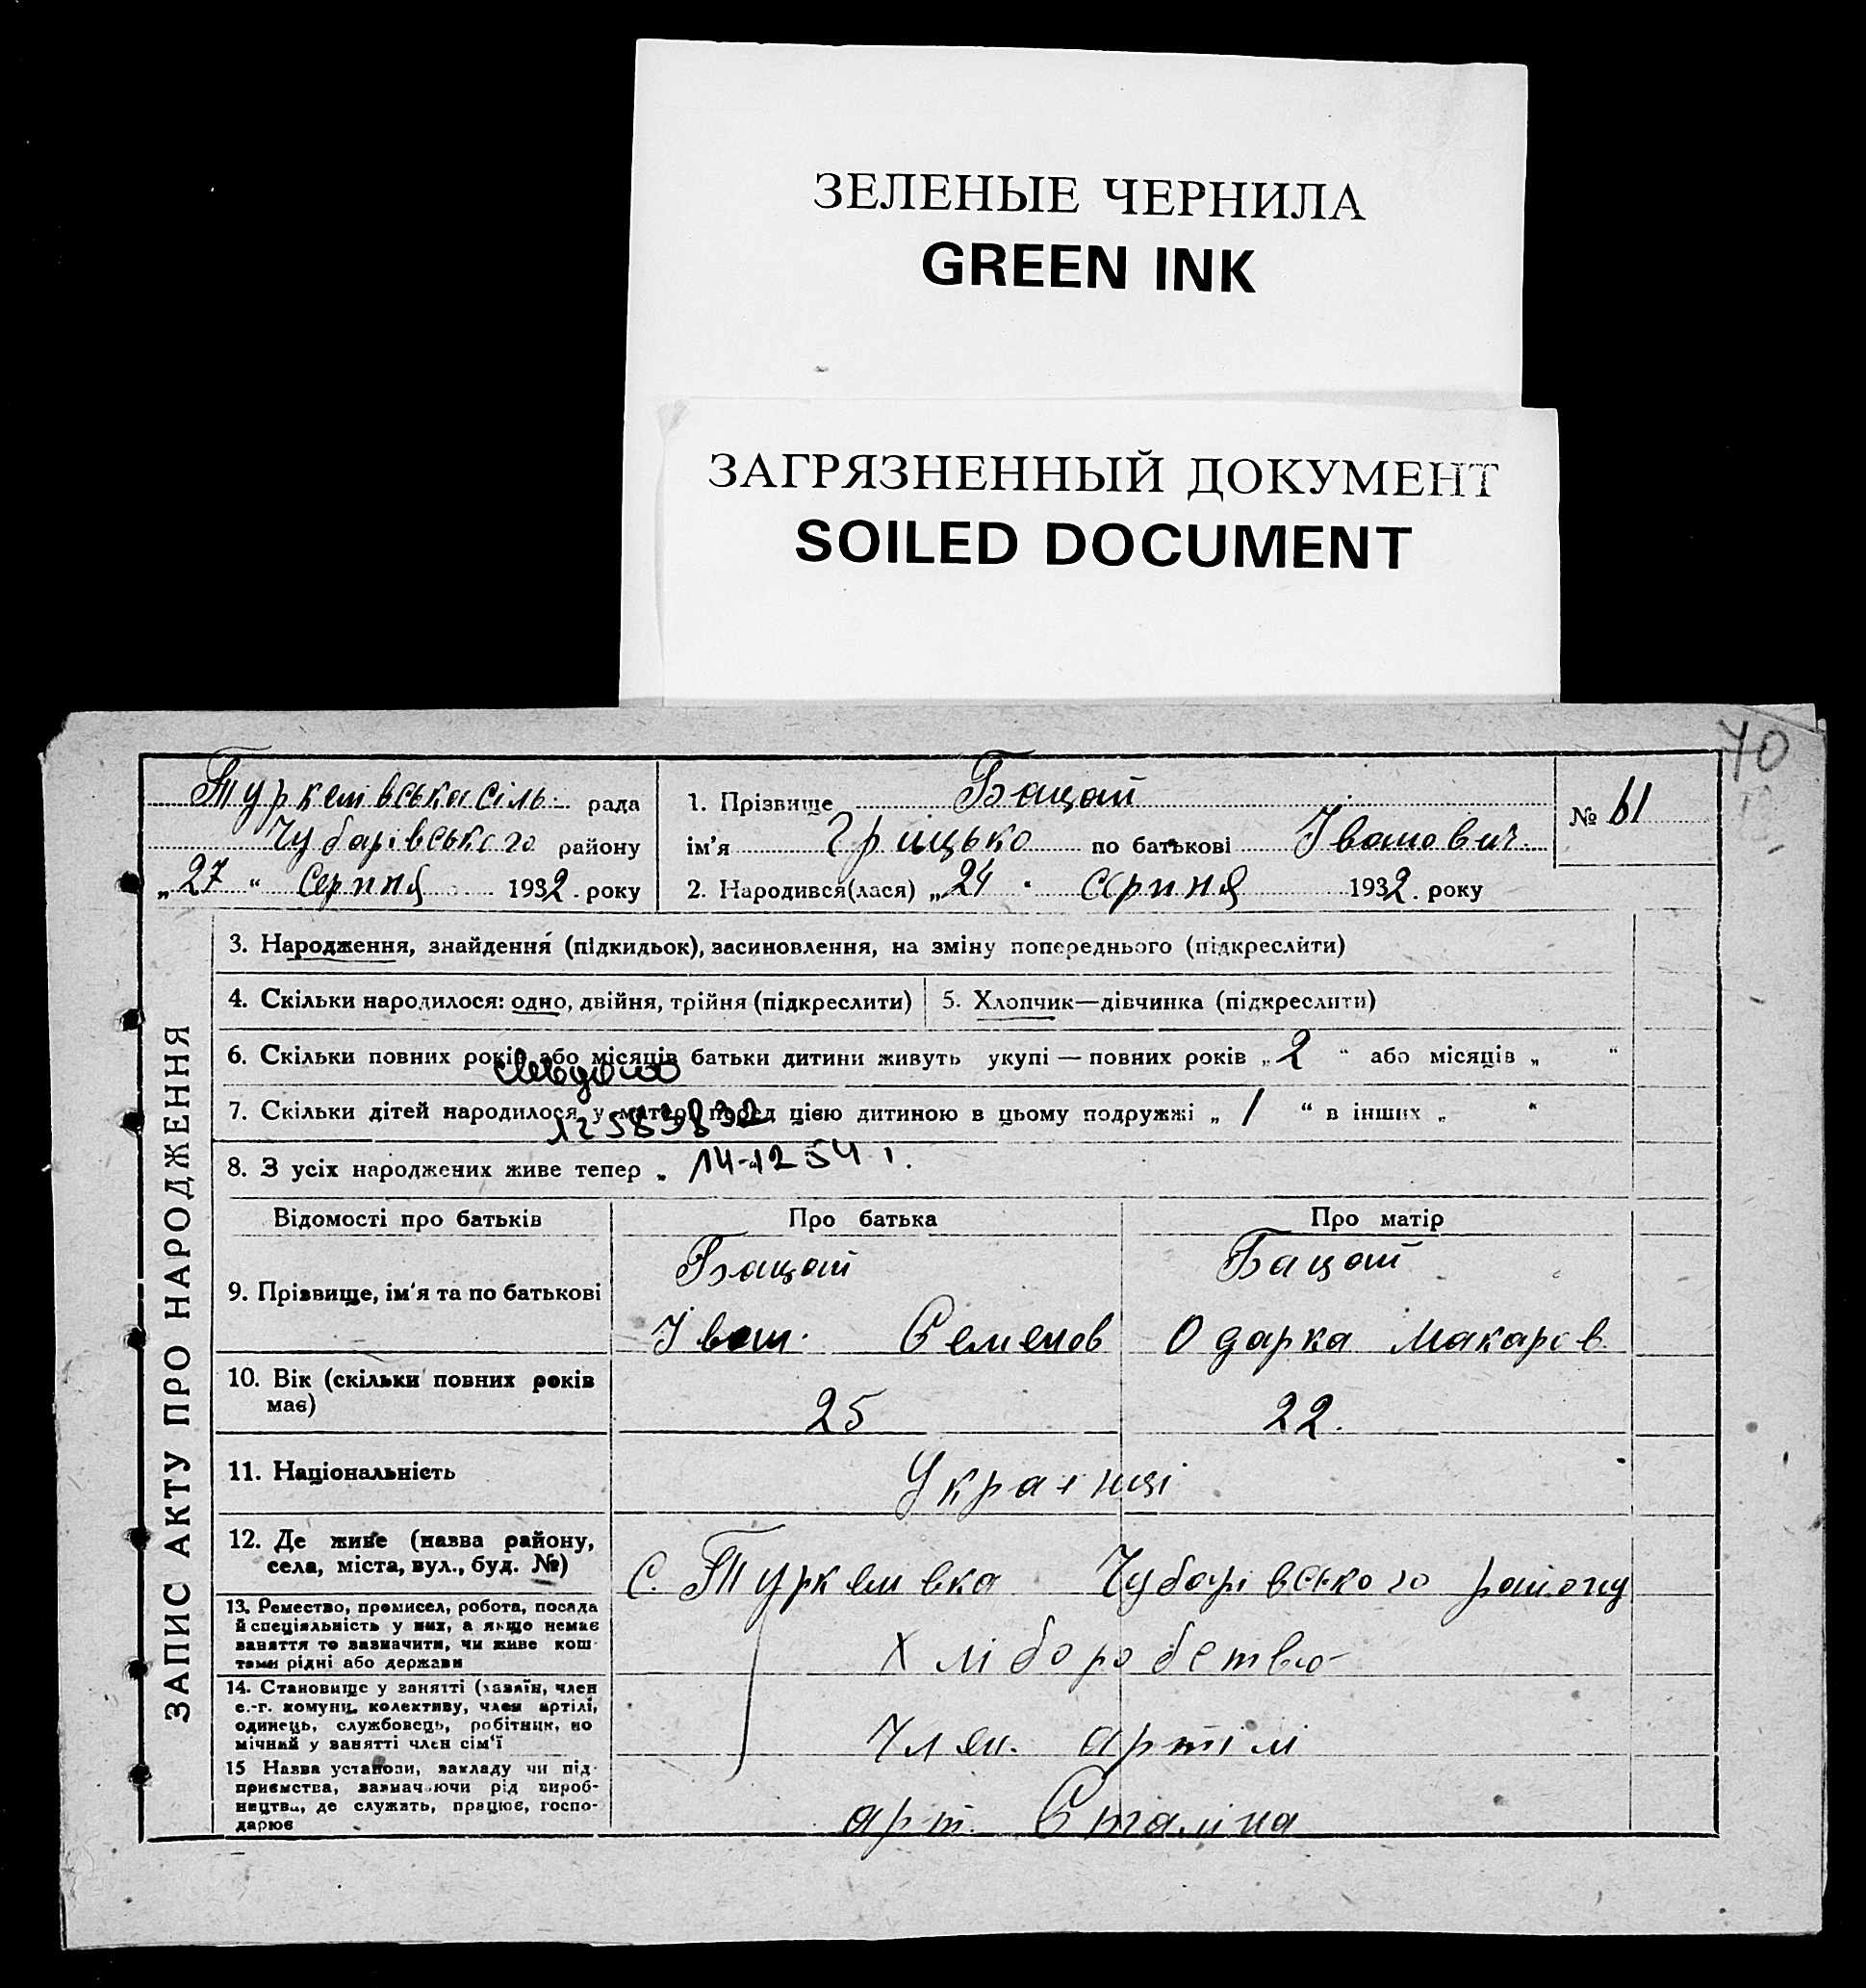 ЗЕЛЕНЫЕ ЧЕРНИЛА
GREEN INK
ЗАГРЯЗНЕННЫЙ ДОКУМЕНТ
SOILED DOCUMENT
40
Туркенівська сіль. рада
Чубарівського району
„27“ Серпня 1932. року
1. Прізвище Бацай
ім'я Грицько по батькові Іванович.
№ 61
2. Народився(лася) „24 “ Серпня 1932. року
ЗАПИС АКТУ ПРО НАРОДЖЕННЯ
3. Народження, знайдення (підкидьок), засиновлення, на зміну попереднього (підкреслити)
4. Скільки народилося: одно, двійня, трійня (підкреслити)
5. Хлопчик—дівчинка (підкреслити)
6. Скільки повних років або місяців батьки дитини живуть укупі — повних років „ 2 “ або місяців „ “
7. Скільки дітей народилося у матері перед цією дитиною в цьому подружжі „ 1 “ в інших „ “
8. З усіх народжених живе тепер „ 14-12 54 г.
Відомості про батьків
Про батька
Про матір
9. Прізвище, ім'я та по батькові
Бацай
Іван. Семенов
Бацай
Одарка Макаров.
10. Вік (скільки повних років
має)
25
22.
11. Національність
Українці
12. Де живе (назва району,
села, міста, вул., буд. №)
с. Туркенівка Чубарівського району
13. Ремество, промисел, робота, посада
й спеціяльність у них, а якщо немає
заняття то зазначити, чи живе кош-
тами рідні або держави
Хліборобство
14. Становище у занятті (хазяїн, член
с.-г. комуни, колективу, член артілі,
одинець, службовець, робітник, по
мічний у занятті член сім'ї
Член. артілі
15 Назва установи, закладу чи під-
приємства, зазначаючи рід вироб-
ництва, де служать, працює, госпо-
дарює
арт. Сталіна